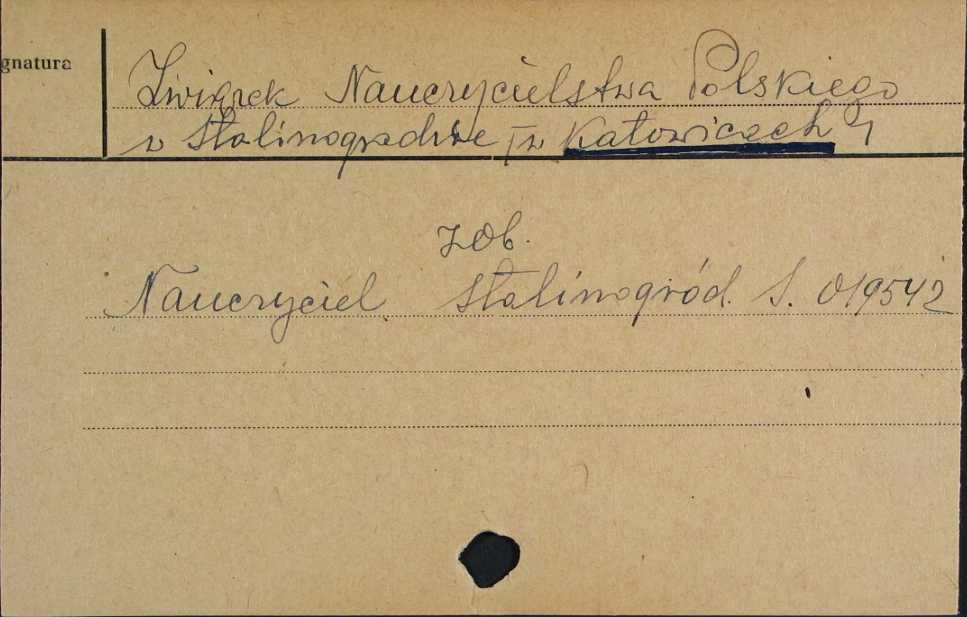 gnatura
Związek Nauczycielstwa Polskiego
w Stalinogrodzie [w Katowicach]
zob.
Nauczyciel Stalinogród. S. 019542